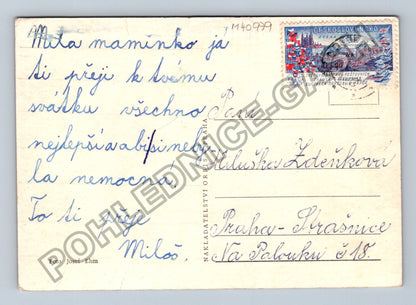 M40999
ČESKOSLOVENSKO
Milá maminko já
ti přeji k tvému
svátku všechno
nejlepší a abisi neby-
la nemocna.
To ti přeje
Miloš.
Foto: Josef Ehm
NAKLADATELSTVÍ ORBIS PRAHA
Paní
Miluška Zdeňková
Praha-Strašnice
Na Palouku č 18.
POHLEDNICE-GA